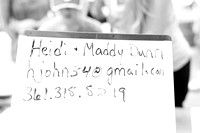 Heidi + Maddy Dunn
hjohn54@gmail.com
361.318.8519